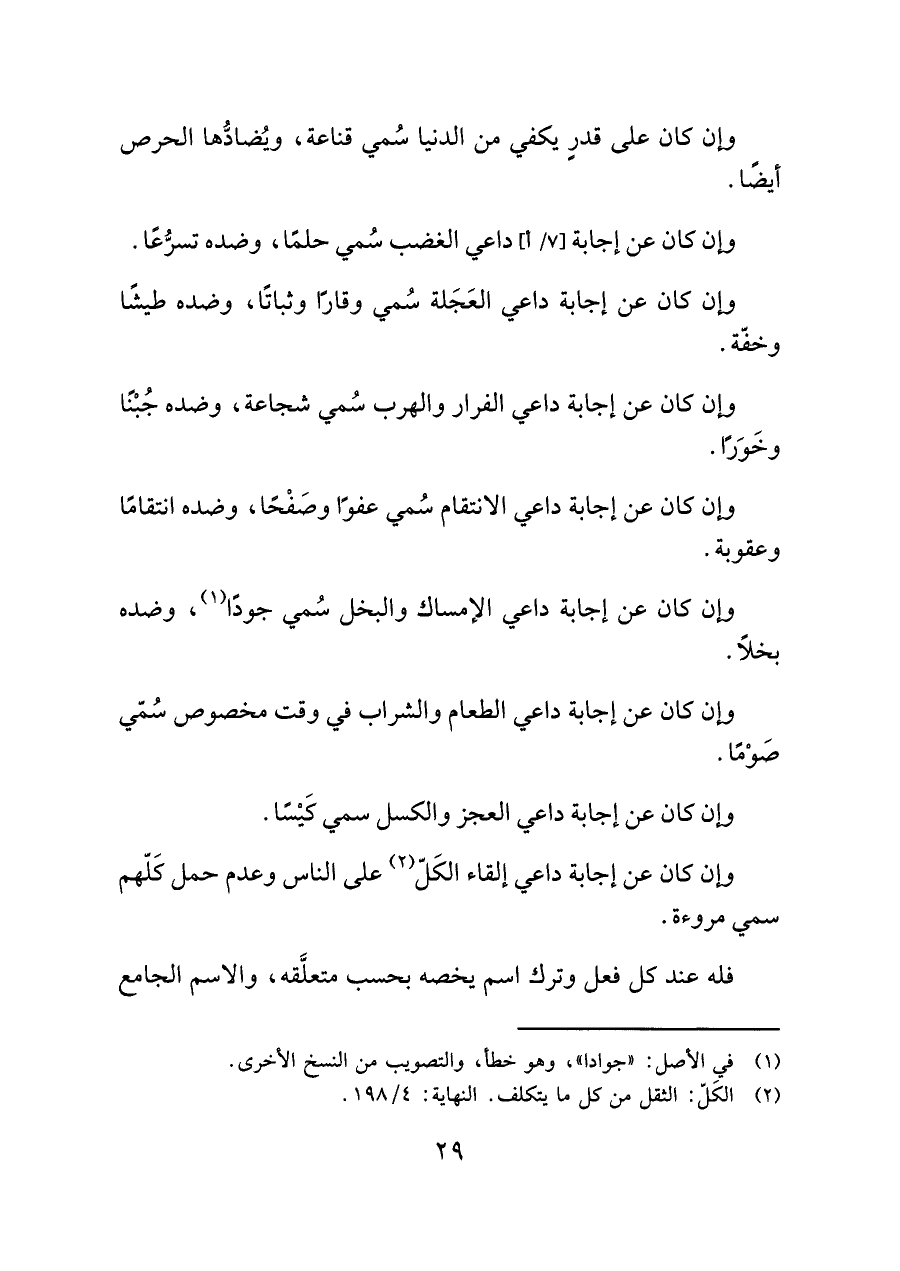 وإن كان على قدرٍ يكفي من الدنيا سُمي قناعة، ويُضادُّها الحرص
أيضًا.
وإن كان عن إجابة [٧/ أ] داعي الغضب سُمي حلمًا، وضده تسرُّعًا.
وإن كان عن إجابة داعي العَجَلة سُمي وقارًا وثباتًا، وضده طيشًا
وخفّة.
وإن كان عن إجابة داعي الفرار والهرب سُمي شجاعة، وضده جُبْنًا
وخَوَرًا.
وإن كان عن إجابة داعي الانتقام سُمي عفوًا وصَفْحًا، وضده انتقامًا
وعقوبة.
وإن كان عن إجابة داعي الإمساك والبخل سُمي جودًا(١)، وضده
بخلاً.
وإن كان عن إجابة داعي الطعام والشراب في وقت مخصوص سُمّي
صَوْمًا.
وإن كان عن إجابة داعي العجز والكسل سمي كَيْسًا.
وإن كان عن إجابة داعي إلقاء الكَلّ(٢) على الناس وعدم حمل كَلّهم
سمي مروءة.
فله عند كل فعل وترك اسم يخصه بحسب متعلَّقه، والاسم الجامع
(١) في الأصل: «جوادا»، وهو خطأ، والتصويب من النسخ الأخرى.
(٢) الكَلّ: الثقل من كل ما يتكلف. النهاية: ٤/ ١٩٨.
٢٩